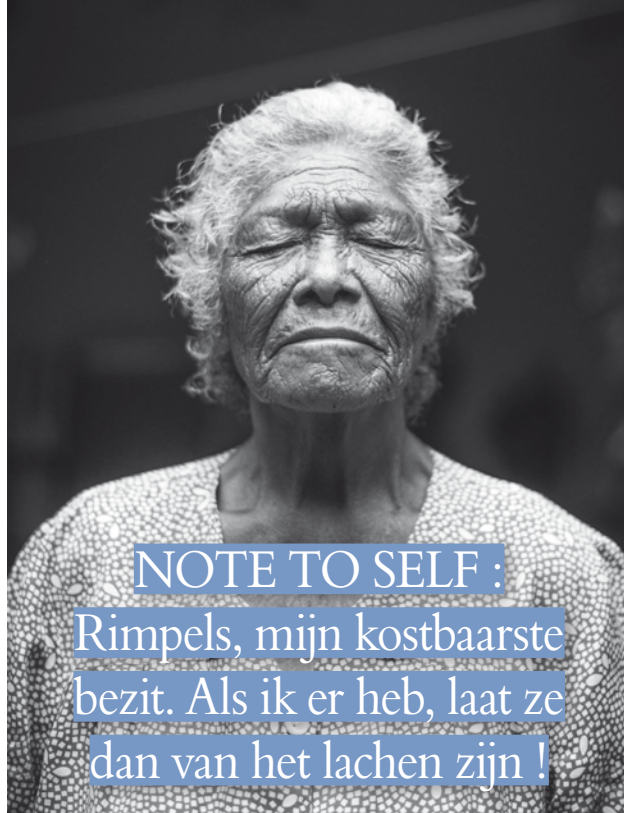 NOTE TO SELF :
Rimpels, mijn kostbaarste
bezit. Als ik er heb, laat ze
dan van het lachen zijn !